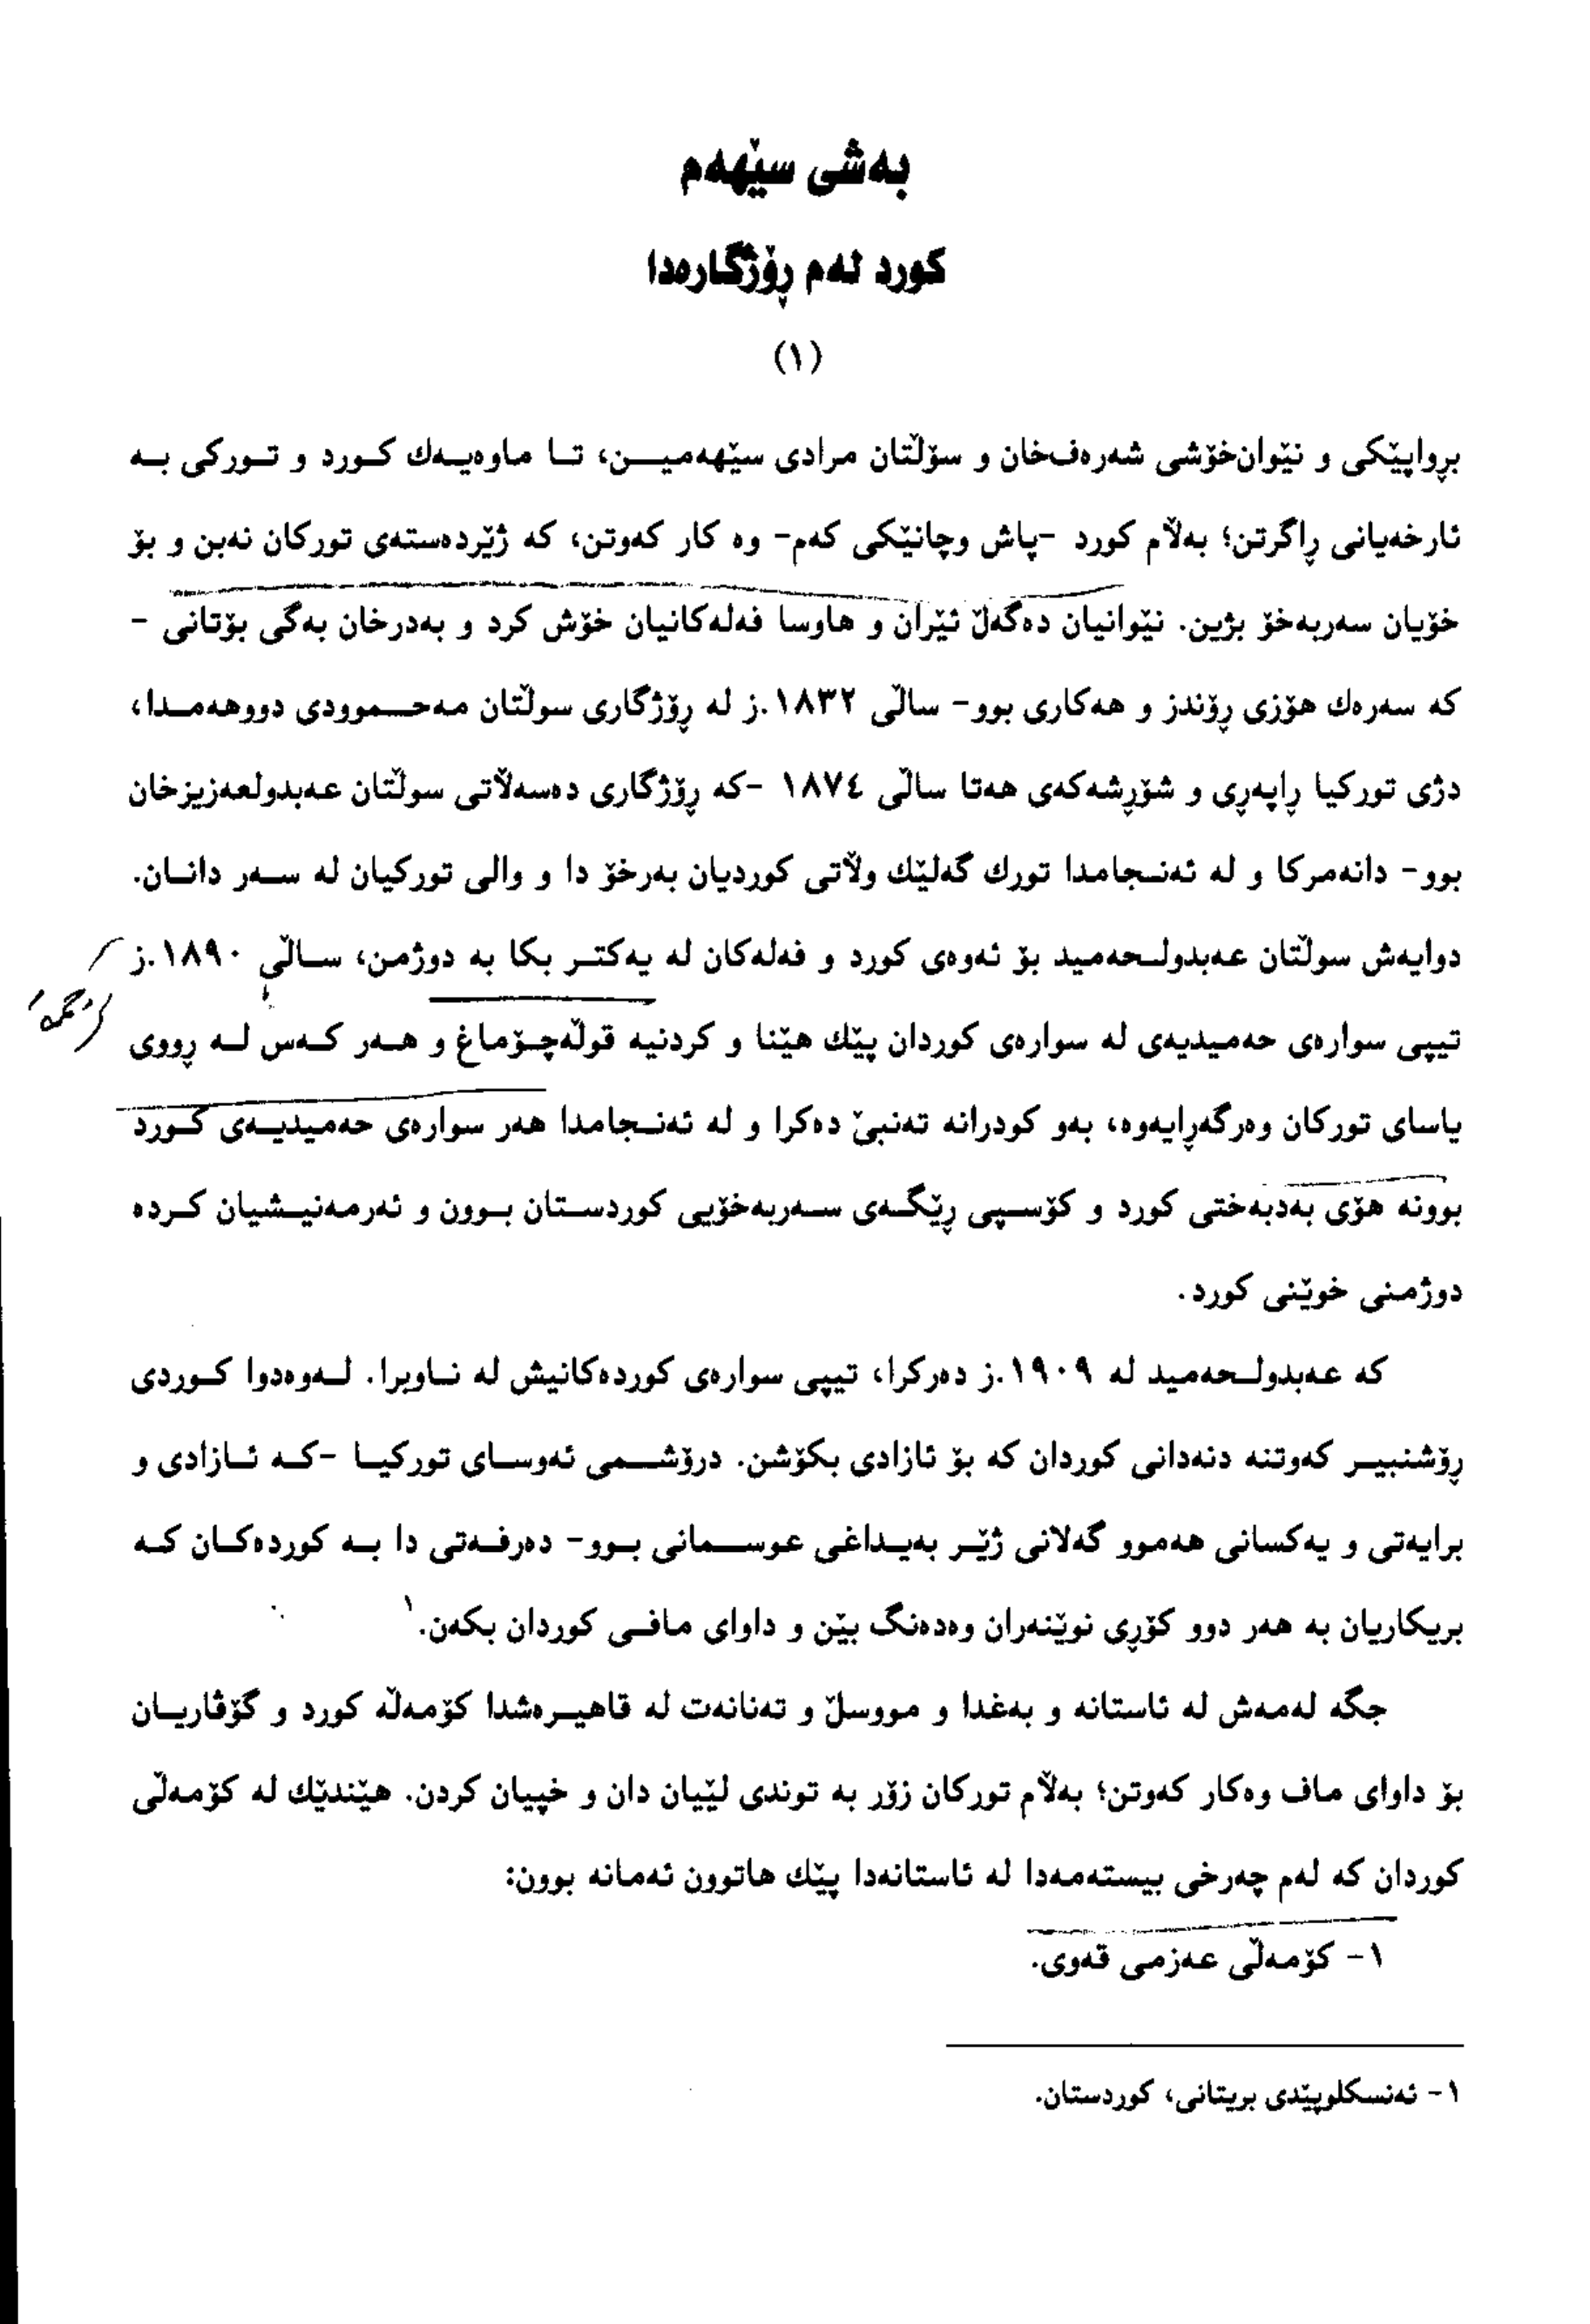 بەشی سێهەم
کورد لەم ڕۆژگارەدا
(١)
بڕواپێکی و نێوان‌خۆشی شەرەف‌خان و سۆڵتان مرادی سێهەمین، تا ماوەیەك کورد و تورکی بە
ئارخەیانی ڕاگرتن؛ بەڵام کورد -پاش وچانێکی کەم- وە کار کەوتن، کە ژێردەستەی تورکان نەبن و بۆ
خۆیان سەربەخۆ بژین. نێوانیان دەگەڵ ئێران و هاوسا فەلەکانیان خۆش کرد و بەدرخان بەگی بۆتانی -
کە سەرەك هۆزی ڕۆندز و هەکاری بوو- ساڵی ١٨٣٢.ز لە ڕۆژگاری سوڵتان مەحموودی دووهەمدا،
دژی تورکیا ڕاپەڕی و شۆڕشەکەی هەتا ساڵی ١٨٧٤ -کە ڕۆژگاری دەسەڵاتی سوڵتان عەبدولعەزیزخان
بوو- دانەمرکا و لە ئەنجامدا تورك گەلێك وڵاتی کوردیان بەرخۆ دا و والی تورکیان لە سەر دانان.
دوایەش سوڵتان عەبدولحەمید بۆ ئەوەی کورد و فەلەکان لە یەکتر بکا بە دوژمن، ساڵی ١٨٩٠.ز
تیپی سوارەی حەمیدیەی لە سوارەی کوردان پێك هێنا و کردنیە قوڵەچۆماغ و هەر کەس لە ڕووی
یاسای تورکان وەرگەڕایەوە، بەو کودرانە تەنبێ دەکرا و لە ئەنجامدا هەر سوارەی حەمیدیەی کورد
بوونە هۆی بەدبەختی کورد و کۆسپی ڕێگەی سەربەخۆیی کوردستان بوون و ئەرمەنیشیان کردە
دوژمنی خوێنی کورد.
کە عەبدولحەمید لە ١٩٠٩.ز دەرکرا، تیپی سوارەی کوردەکانیش لە ناوبرا. لەوەدوا کوردی
ڕۆشنبیر کەوتنە دنەدانی کوردان کە بۆ ئازادی بکۆشن. درۆشمی ئەوسای تورکیا -کە ئازادی و
برایەتی و یەکسانی هەموو گەلانی ژێر بەیداغی عوسمانی بوو- دەرفەتی دا بە کوردەکان کە
بریکاریان بە هەر دوو کۆڕی نوێنەران وەدەنگ بێن و داوای مافی کوردان بکەن.١
جگە لەمەش لە ئاستانە و بەغدا و مووسڵ و تەنانەت لە قاهیرەشدا کۆمەڵە کورد و گۆڤاریان
بۆ داوای ماف وەکار کەوتن؛ بەڵام تورکان زۆر بە توندی لێیان دان و خپیان کردن. هێندێك لە کۆمەڵی
کوردان کە لەم چەرخی بیستەمەدا لە ئاستانەدا پێك هاتوون ئەمانە بوون:
١- کۆمەڵی عەزمی قەوی.
١- ئەنسکلوپێدی بریتانی، کوردستان.